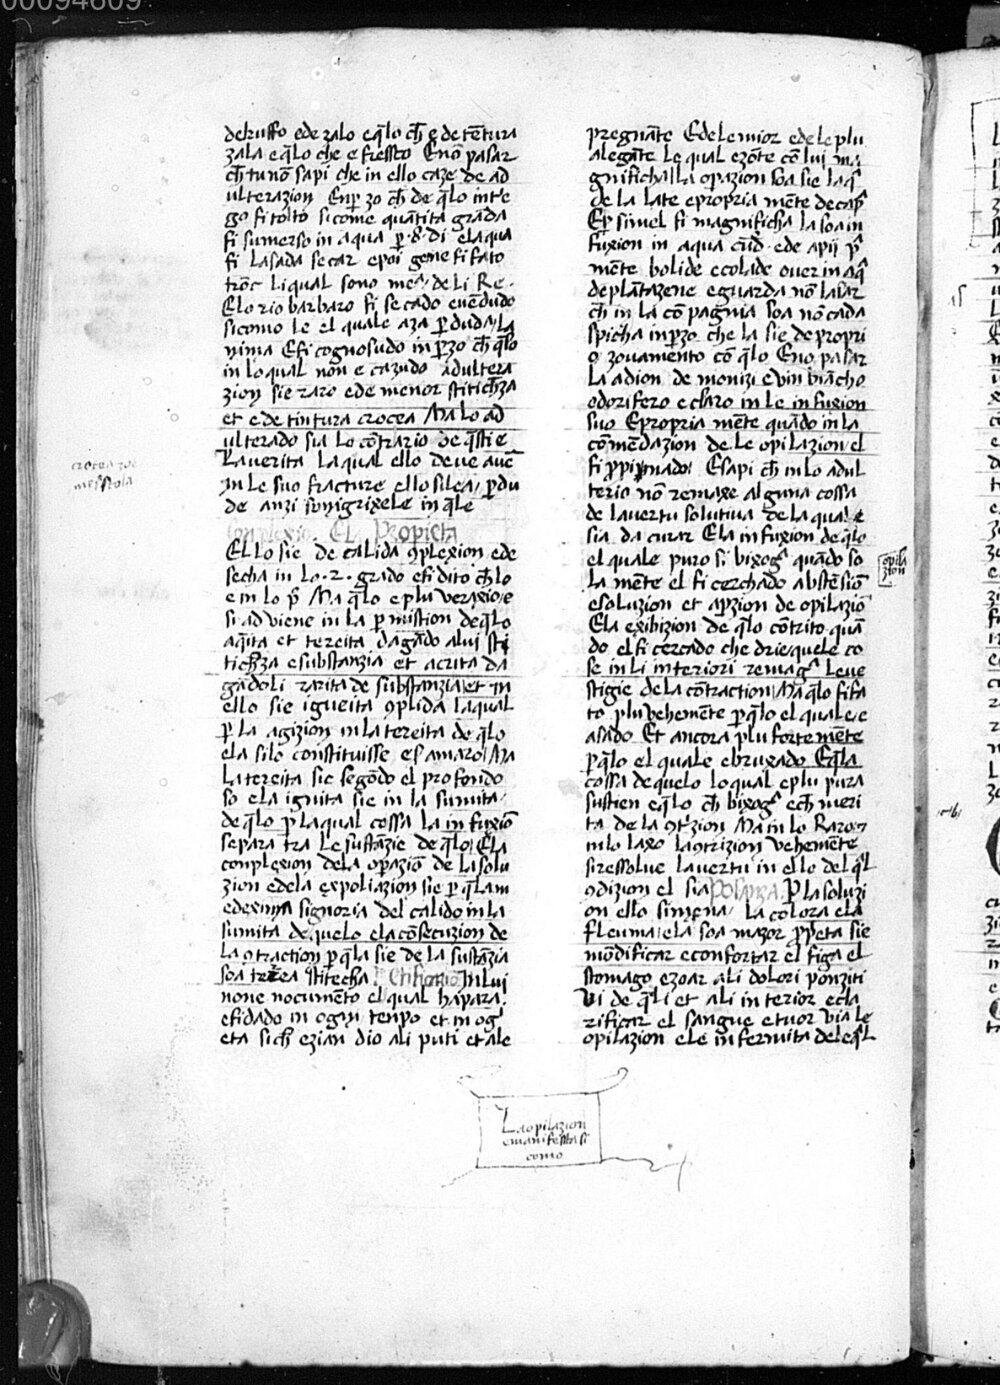 00094609
de ruffo ede zalo e q̄lo ch̄ e de tētura
zala e q̄lo che e fressco E nō pasar
ch̄ tu nō sapi che in ello caze de ad
ulterazion E nꝑ zo ch̄ de q̄lo inte
go fi tolto sicome quātita grāda
fi sumerso in aqua ꝑ 8 di e laqua
fi lasada secar e poi gene fi fato
trōc li qual sono me de li Re
E lo rio barbaro fi secado e uēdudo
sicomo le el quale aza ꝑduda la
nima E fi cognosudo inꝑzo ch̄ q̄lo
in lo qual non e cazudo adultera
zion sie raro e de menor stiticheza
et e de tintura crocea Ma lo ad
ulterado sia lo cōtrario de q̄sti e
la uerita la qual ello deue auē
in le suo fracture ello si lea ꝑdu
de anzi
in q̄le
complexion. EL Propieta
Ello sie de calida ꝯplexion e de
secha in lo .2. grado e fi dito ch̄ lo
e in lo p̄ Ma q̄lo e plu
si adviene in la ꝑmistion de q̄lo
aq̄ita et tereita dagādo a lui sti
tich̄za e substanzia et acuita da
gādoli rarita de substanzia et in
ello sie igueita ꝯplida la qual
ꝑ la agizion in la tereita de q̄lo
ela silo constituisse e s amaro Ma
la tereita sie segōdo el profondo
so e la ignita sie in la sumita
de q̄lo p̄ la qual cossa la infuxiō
separa tra le sustāzie de q̄lo E la
complexion dela oꝑaziō de la solu
zion e dela expoliazion sie ꝑ q̄la m
signoria del calido in la
sumita de quelo e la cōsecuzion de
la ꝯtraction ꝑ q̄la sie de la sustāzia
soa terea stitecha. In lui
none nocumēto el qual hapara
e fi dado in ogni tenpo et in og
eta sich̄ e zian dio ali puti et ale
pregnāte E de le mior e de le plu
alegāte le qual ezōte cō lui ma
gnificha la la oꝑazion soa sie la q̄
de la late e propria mēte de cap
E ꝑ simel fi magnificha la soa in
fuxion in aqua cūd e de apii p̄
mēte bolide e colade ouer in aq̄
de plātazene e guarda nō lasar
ch̄ in la cōpagnia soa nō cada
spicha inꝑzo che la sie de propri
o zouamento cō q̄lo E no pasar
la adion de monizi e vin biācho
odorifero e claro in le infuxion
suo E propria mēte quādo in la
comēdazion de le opilazion el
fi E sapi ch̄ in lo adul
terio nō remaxe alguna cossa
de la uertu solutiua de la qual e
sia da curar E la infuxion de q̄lo
el quale puro si bixoḡ quādo so
la mēte el fi cerchado abstēsiō
e soluzion et aꝑzion de opilaziō
E la exibizion de q̄lo cōtrito quā
do el fi cercado che drie quele co
se in li interiori remaḡ le ue
stigie de la cōtraction Ma q̄lo fi fa
to plu vehemēte ꝑ q̄lo el quale e
asado Et ancora plu forte mēte
ꝑ q̄lo el quale e bruxado E q̄la
cossa de quelo lo qual e plu pura
sustien e q̄lo ch̄ bixoḡ ech̄ meri
ta de la ꝯtrizion Ma in lo raro
in lo laxo la ꝯtrizion vehemēte
si ressolue la uertu in ello del q̄l
ꝯdizion el sia POSANZA. P̄ la soluzi
on ello simena la colora e la
fleuma e la soa mazor ꝓpeta sie
mōdificar e confortar el figa el
stomago e zoar a li dolori ponziti
vi de q̄li et ali interior e cla
rificar el sangue e tuor via le
opilazion e le infermita dele q̄l
crocea zoe
messcola
opila
zion
La opilazion
e manifesta si
como